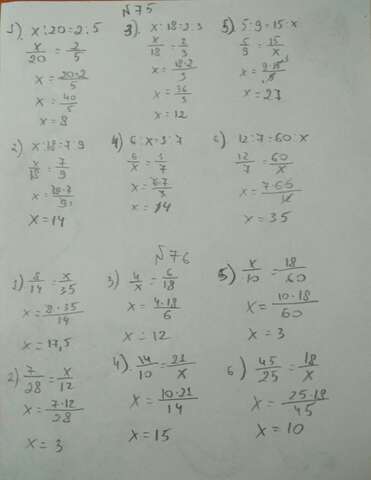 №75
1) x:20=2:5
x/20=2/5
x=20·2/5
x=40/5
x=8
3) x:18=2:3
x/18=2/3
x=18·2/3
x=36/3
x=12
5) 5:9=15:x
5/9=15/x
x=9·15/5
x=27
2) x:18=7:9
x/18=7/9
x=14
4) 6:x=3:7
x=14
6) 12:7=60:x
12/7=60/x
x=35
№76
1) 8/14=x/35
x=8·35/14
x=17,5
3) 4/x=6/18
x=4·18/6
x=12
5) x/10=18/60
x=10·18/60
x=3
2) 7/28=x/12
x=7·12/28
x=3
4) 14/10=21/x
x=10·21/14
x=15
6) 45/25=18/x
x=25·18/45
x=10